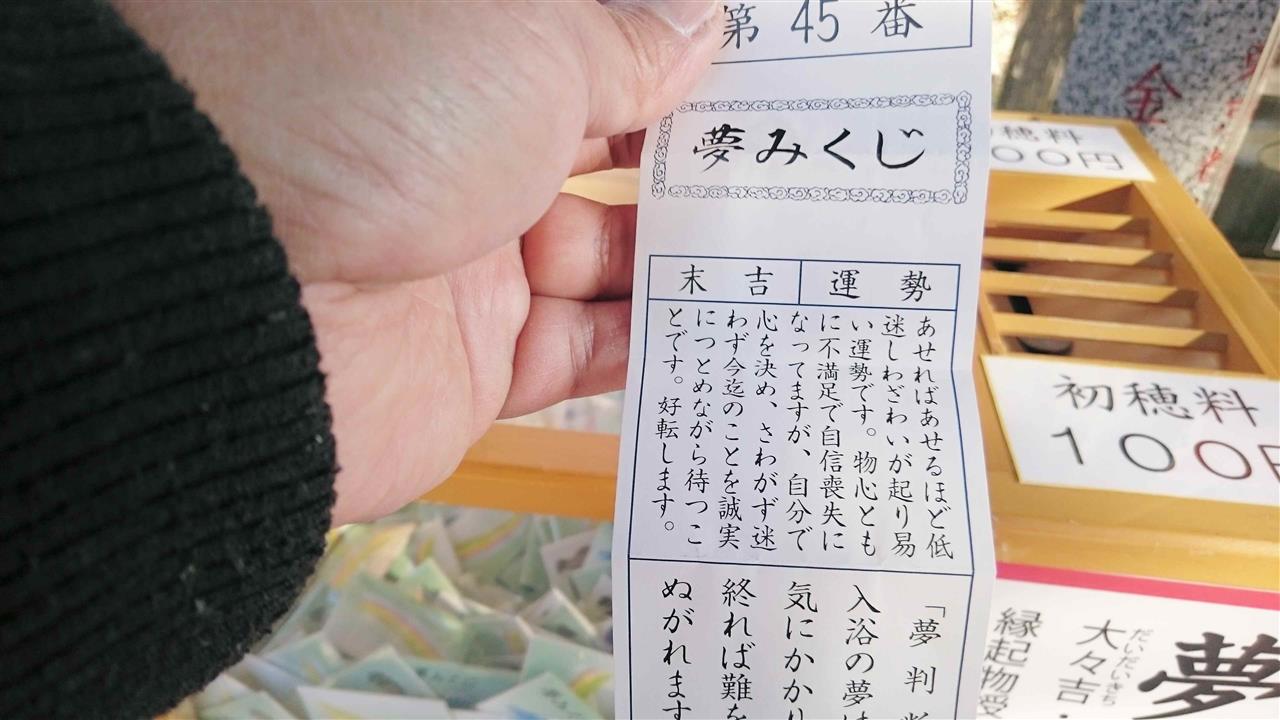 第45番
夢みくじ
運勢
末吉
あせればあせるほど低
迷しわざわいが起り易
い運勢です。物心とも
に不満足で自信喪失に
なってますが、自分で
心を決め、さわがず迷
わず今迄のことを誠実
につとめながら待つこ
とです。好転します。
「夢判
入浴の夢は
気にかかり
終れば難を
ぬがれます
穂料
００円
初穂料
１００円
金
夢
だいだいきち
大々吉・
縁起物受